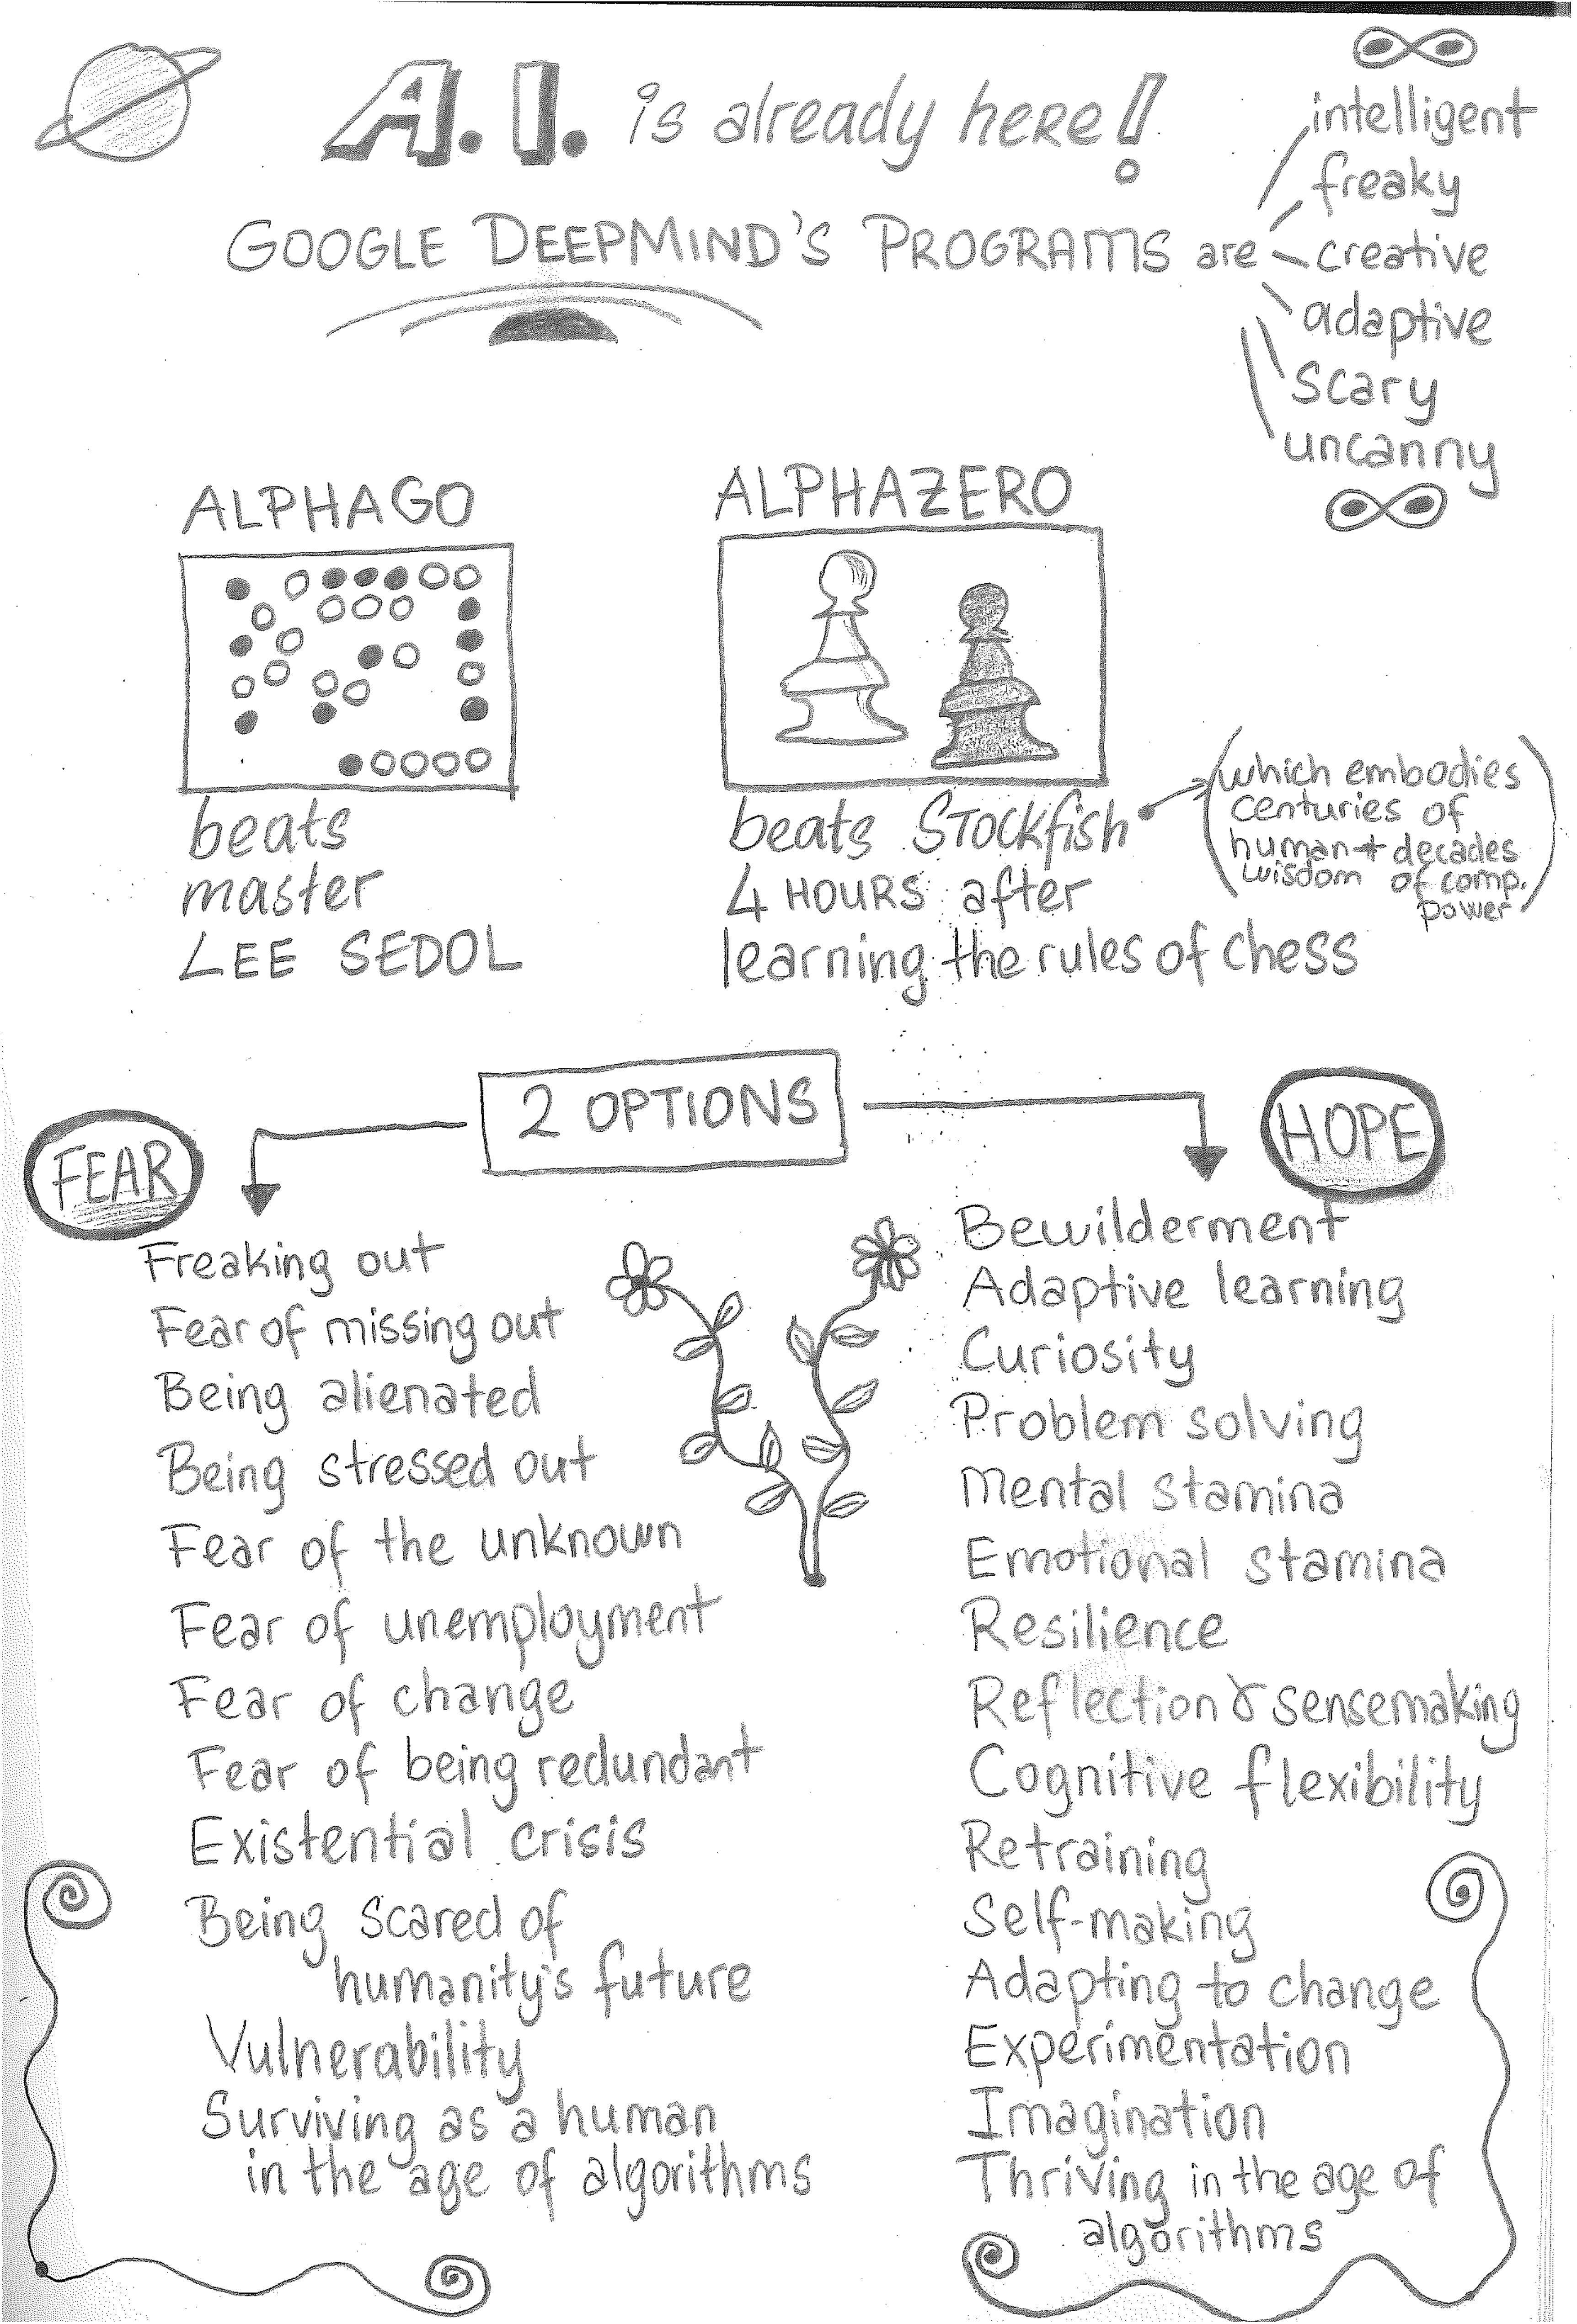 A.I. is already here!
GOOGLE DEEPMIND'S PROGRAMS are
intelligent
freaky
creative
adaptive
scary
uncanny
ALPHAGO
beats
master
LEE SEDOL
ALPHAZERO
beats Stockfish
4 HOURS after
learning the rules of chess
(which embodies
centuries of
human + decades
wisdom of comp.
power)
2 OPTIONS
FEAR
Freaking out
Fear of missing out
Being alienated
Being stressed out
Fear of the unknown
Fear of unemployment
Fear of change
Fear of being redundant
Existential crisis
Being scared of
humanity's future
Vulnerability
Surviving as a human
in the age of algorithms
HOPE
Bewilderment
Adaptive learning
Curiosity
Problem solving
Mental stamina
Emotional stamina
Resilience
Reflection & sensemaking
Cognitive flexibility
Retraining
Self-making
Adapting to change
Experimentation
Imagination
Thriving in the age of
algorithms